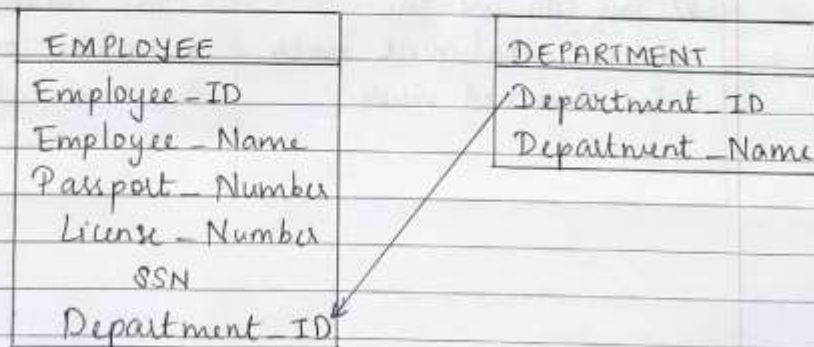 EMPLOYEE
Employee_ID
Employee_Name
Passport_Number
License_Number
SSN
Department_ID
DEPARTMENT
Department_ID
Department_Name